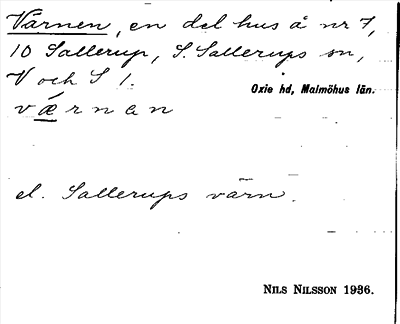 Varnen, en del hus å nr 7,
10 Sallerup, S. Sallerups sn,
V och S 1.
Oxie hd, Malmöhus län.
vǽrnan
el. Sallerups värn.
NILS NILSSON 1936.